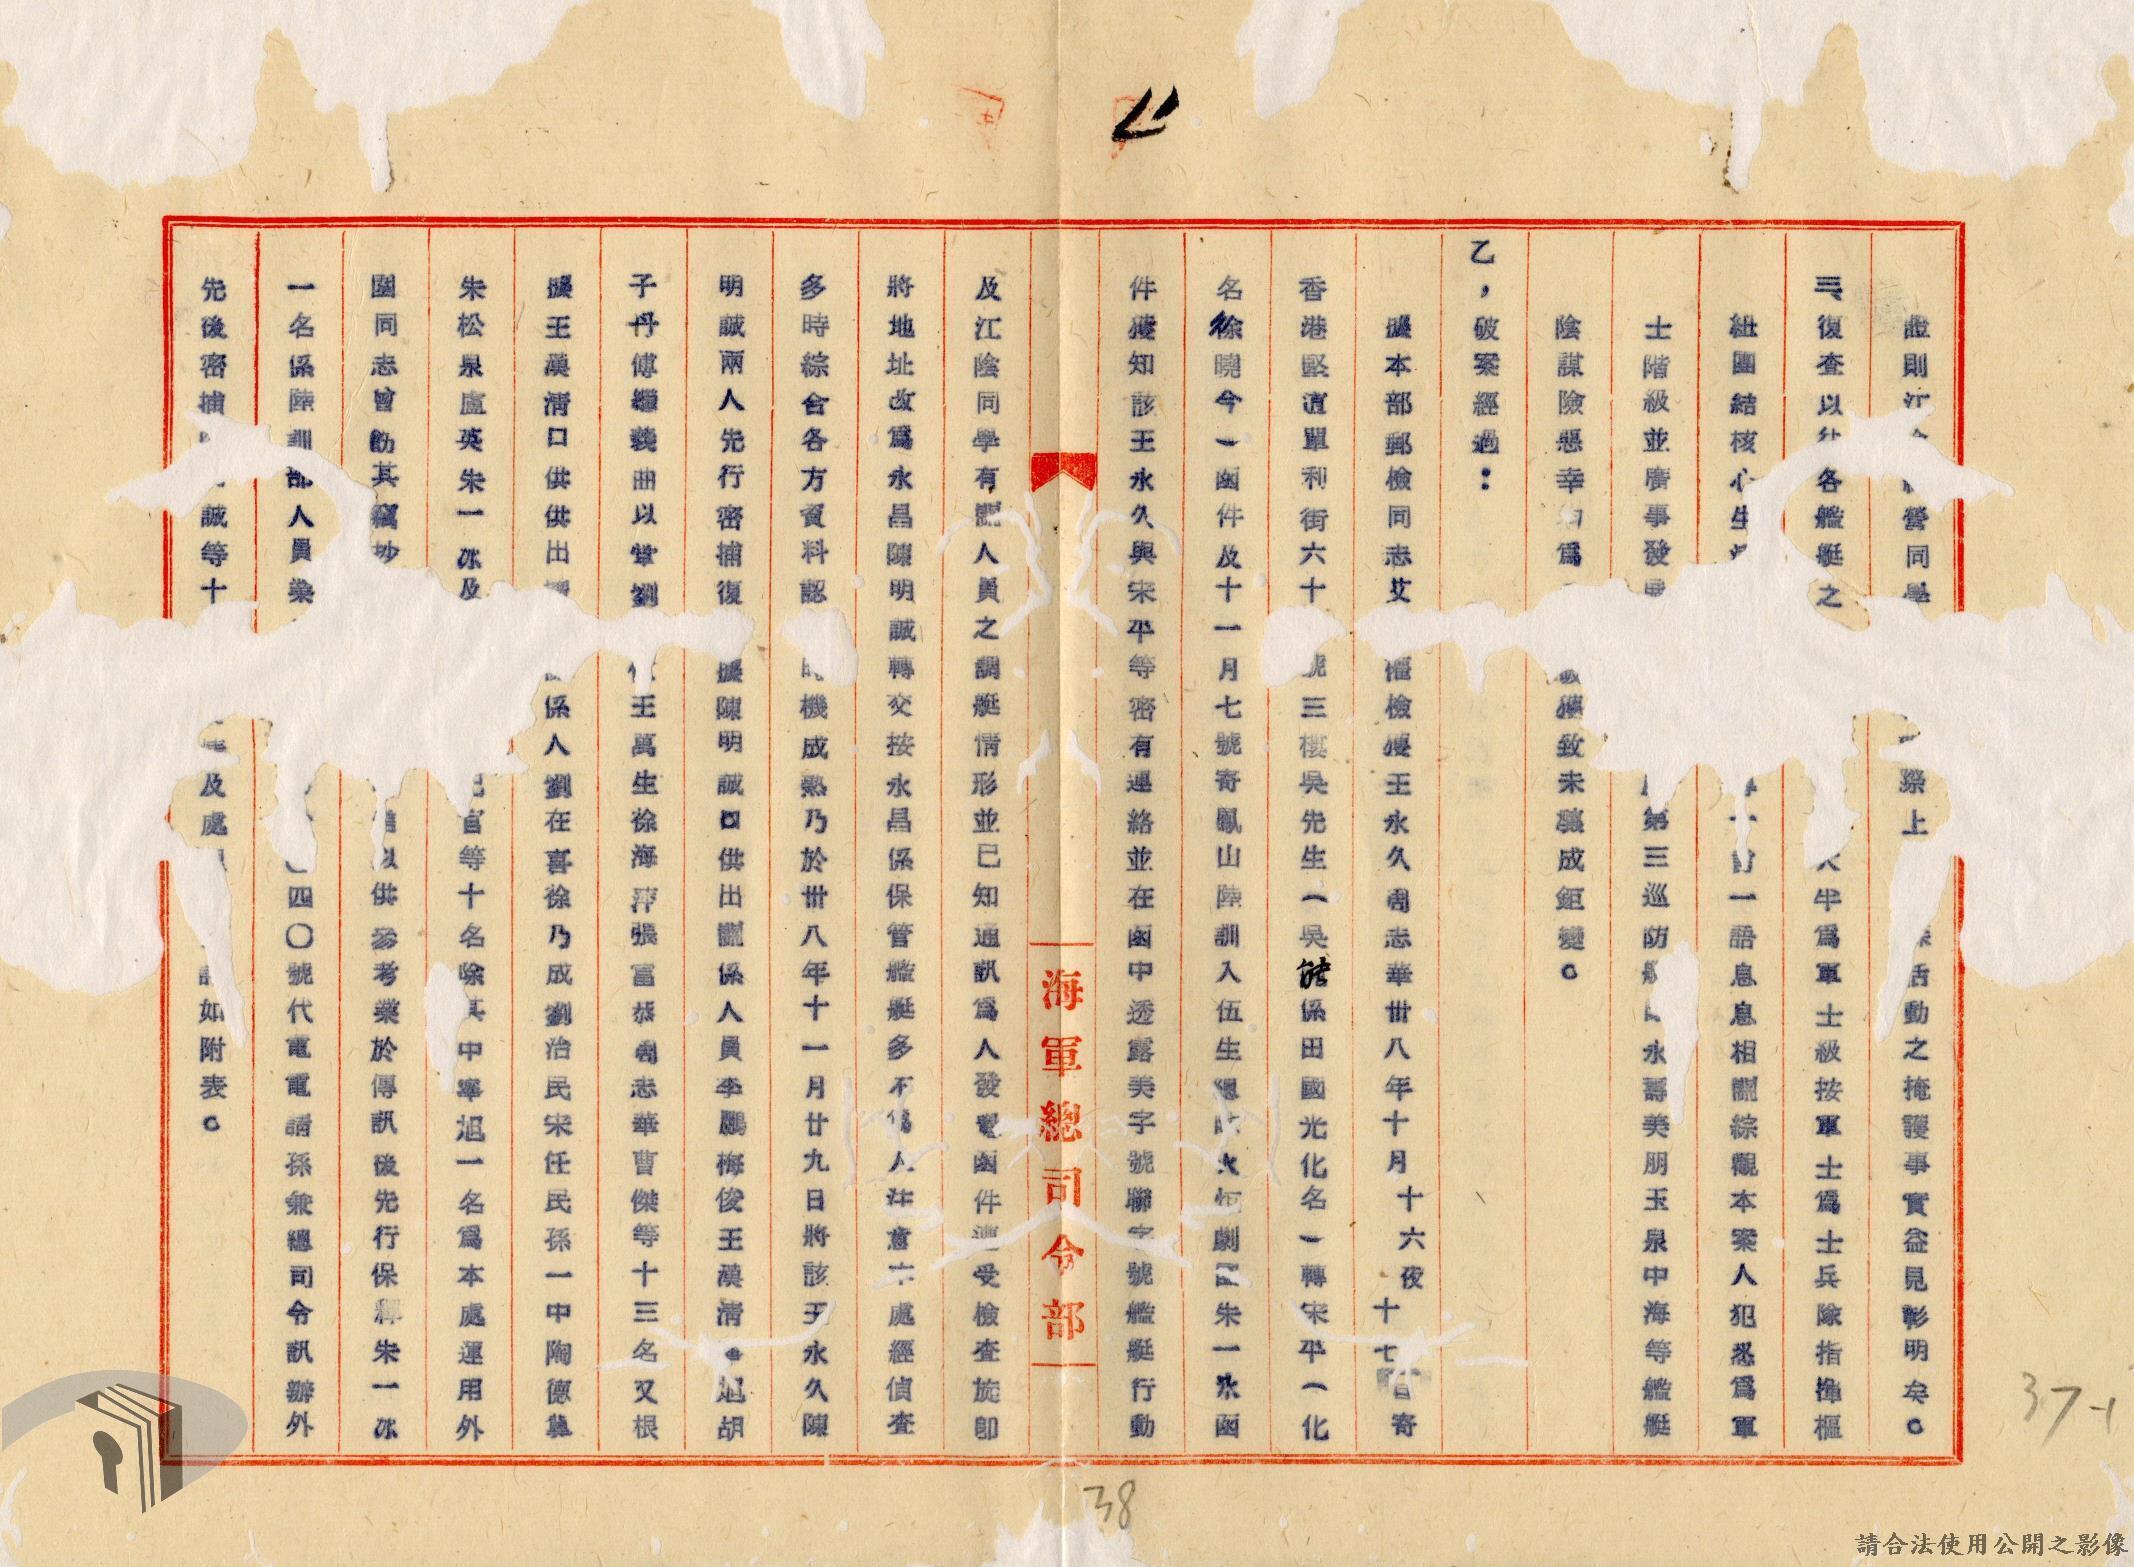 證則江營同學際上活動之掩護事實益見彰明矣。
三、復查以往各艦艇之大半為軍士級按軍士為士兵隊指揮樞
紐團結核心生一語息息相關綜觀本案人犯悉為軍
士階級並廣事發展第三巡防永壽美朋玉泉中海等艦艇
陰謀險惡幸為獲致未釀成鉅變。
乙，破案經過：
據本部郵檢同志艾檢獲王永久周志華卅八年十月十六夜十七日寄
香港堅道單利街六十號三樓吳先生（吳係田國光化名）轉宋平（化
名徐曉今）函件及十一月七號寄鳳山陸訓入伍生總隊火恒劇團朱一冰函
件獲知該王永久與宋平等密有連絡並在函中透露美字號聯字號艦艇行動
海軍總司令部
及江陰同學有關人員之調艇情形並已知通訊為人發覺函件遭受檢查旋即
將地址改為永昌陳明誠轉交按永昌係保管艦艇多不為人注意本處經偵查
多時綜合各方資料認時機成熟乃於卅八年十一月廿九日將該王永久陳
明誠兩人先行密捕復據陳明誠口供出關係人員李鵬梅俊王漢清旭胡
子丹傅繼義曲以堂劉王萬生徐海萍張富恭周志華曹傑等十三名又根
據王漢清口供供出關係人劉在喜徐乃成劉治民宋任民孫一中陶德
朱松泉盧英朱一冰及官等十名除其中寧旭一名為本處運用外
團同志曾飭其竊抄以供參考業於傳訊後先行保釋朱一冰
一名係陸訓部人員業四〇號代電電請孫兼總司令訊辦外
先後密捕誠等十及處如附表。
38
37-1
請合法使用公開之影像